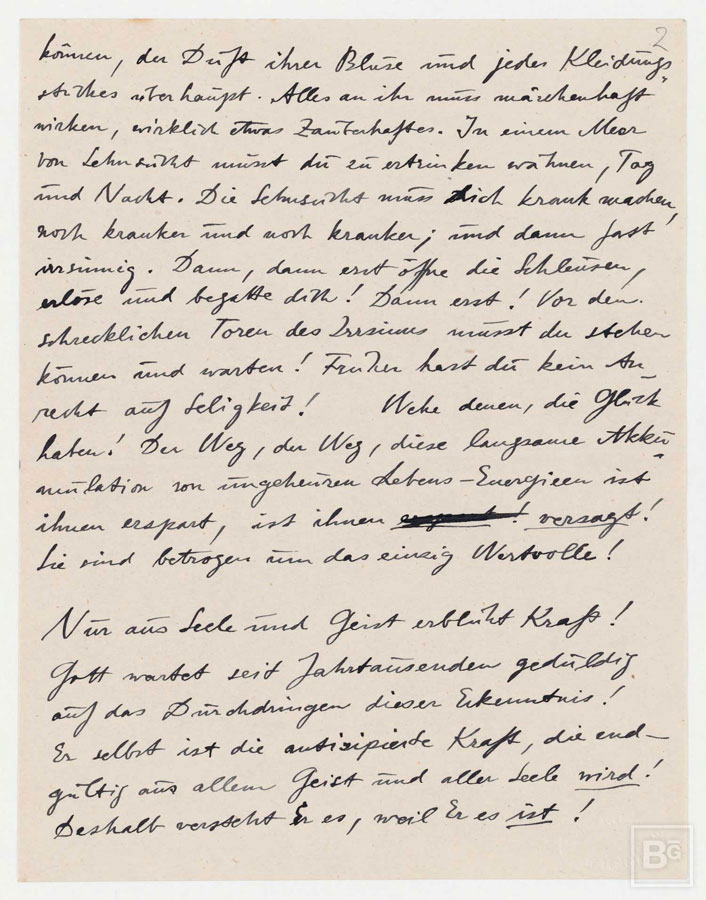 2
können, der Duft ihrer Bluse und jedes Kleidungs-
stückes überhaupt. Alles an ihr muss märchenhaft
wirken, wirklich etwas Zauberhaftes. In einem Meer
von Sehnsucht musst du zu ertrinken wähnen, Tag
und Nacht. Die Sehnsucht muss dich krank machen,
noch kranker und noch kranker; und dann fast
irrsinnig. Dann, dann erst öffne die Schleusen,
erlöse und begatte dich! Dann erst! Vor den
schrecklichen Toren des Irrsinns musst du stehen
können und warten! Früher hast du kein An-
recht auf Seligkeit! Wehe denen, die Glück
haben! Der Weg, der Weg, diese langsame Akku-
mulation von ungeheuren Lebens-Energieen ist
ihnen erspart, ist ihnen versagt!
Sie sind betrogen um das einzig Wertvolle!
Nur aus Seele und Geist erblüht Kraft!
Gott wartet seit Jahrtausenden geduldig
auf das Durchdringen dieser Erkenntnis!
Er selbst ist die antizipierte Kraft, die end-
gültig aus allem Geist und aller Seele wird!
Deshalb versteht Er es, weil Er es ist!
BG